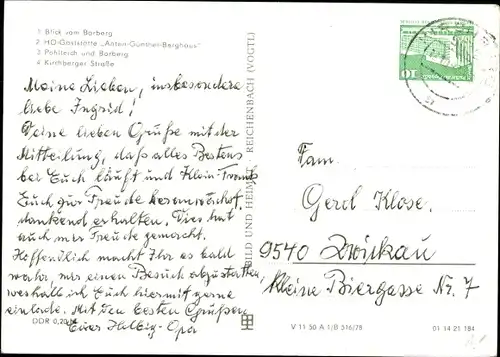 1 Blick vom Borberg
2 HO-Gaststätte „Anton-Günther-Berghaus"
3 Pohlteich und Borberg
4 Kirchberger Straße
Meine Lieben, insbesondere
liebe Ingrid!
Deine lieben Grüße mit der
Mitteilung, daß alles Bestens
bei Euch läuft und Klein
Euch zur Freude
dankend erhalten. Dies hat
auch mir Freude gemacht.
Hoffentlich macht Ihr es bald
wahr, mir einen Besuch abzustatten,
weshalb ich Euch hiermit gerne
einlade. Mit den besten Grüßen
Euer Helbig-Opa
DDR 0,20 M
BILD UND HEIMAT REICHENBACH (VOGTL)
10
Fam.
Gerd Klose
9540 Zwickau
Kleine Biergasse Nr. 7
V 11 50 A 1/B 316/78
01 14 21 184